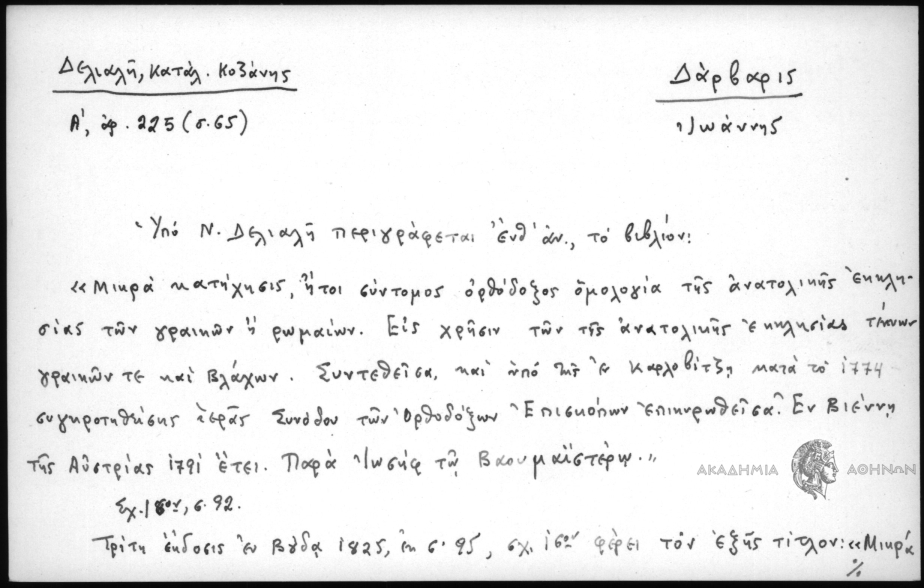 Δελιαλῆ, Κατάλ. Κοζάνης
Δάρβαρις
Α', ἀρ. 225 (σ. 65)
Ἰωάννης
Ὑπό Ν. Δελιαλῆ περιγράφεται ἔνθ' ἀν., τό βιβλίον:
«Μικρά κατήχησις, ἤτοι σύντομος ὀρθόδοξος ὁμολογία τῆς ἀνατολικῆς ἐκκλη-
σίας τῶν γραικῶν ἤ ρωμαίων. Εἰς χρῆσιν τῶν τῆς ἀνατολικῆς ἐκκλησίας τέκνων
γραικῶν τε καί Βλάχων. Συντεθεῖσα, καί ὑπό τῆς ἐν Καρλοβίτζῃ κατά τό 1774
συγκροτηθείσης ἱερᾶς Συνόδου τῶν Ὀρθοδόξων Ἐπισκόπων ἐπικυρωθεῖσα. Ἐν Βιέννῃ
τῆς Αὐστρίας 1791 ἔτει. Παρά Ἰωσήφ τῷ Βαουμαϊστέρῳ.»
ΑΚΑΔΗΜΙΑ ΑΘΗΝΩΝ
Σχ. 16ον, σ. 92.
Τρίτη ἔκδοσις ἐν Βούδᾳ 1825, ἐκ σ. 95, σχ. 16ον φέρει τόν ἑξῆς τίτλον: «Μικρά
%